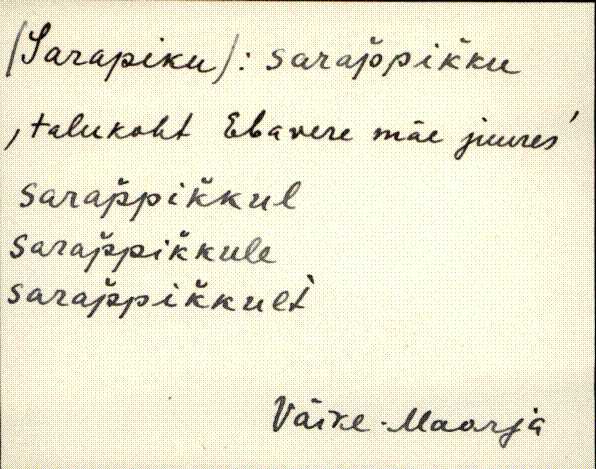 (Sarapiku): sarap̆pik̆ku
‚talukoht Ebavere mäe juures’
sarap̆pik̆kul
sarap̆pik̆kule
sarap̆pik̆kult
Väike-Maarja